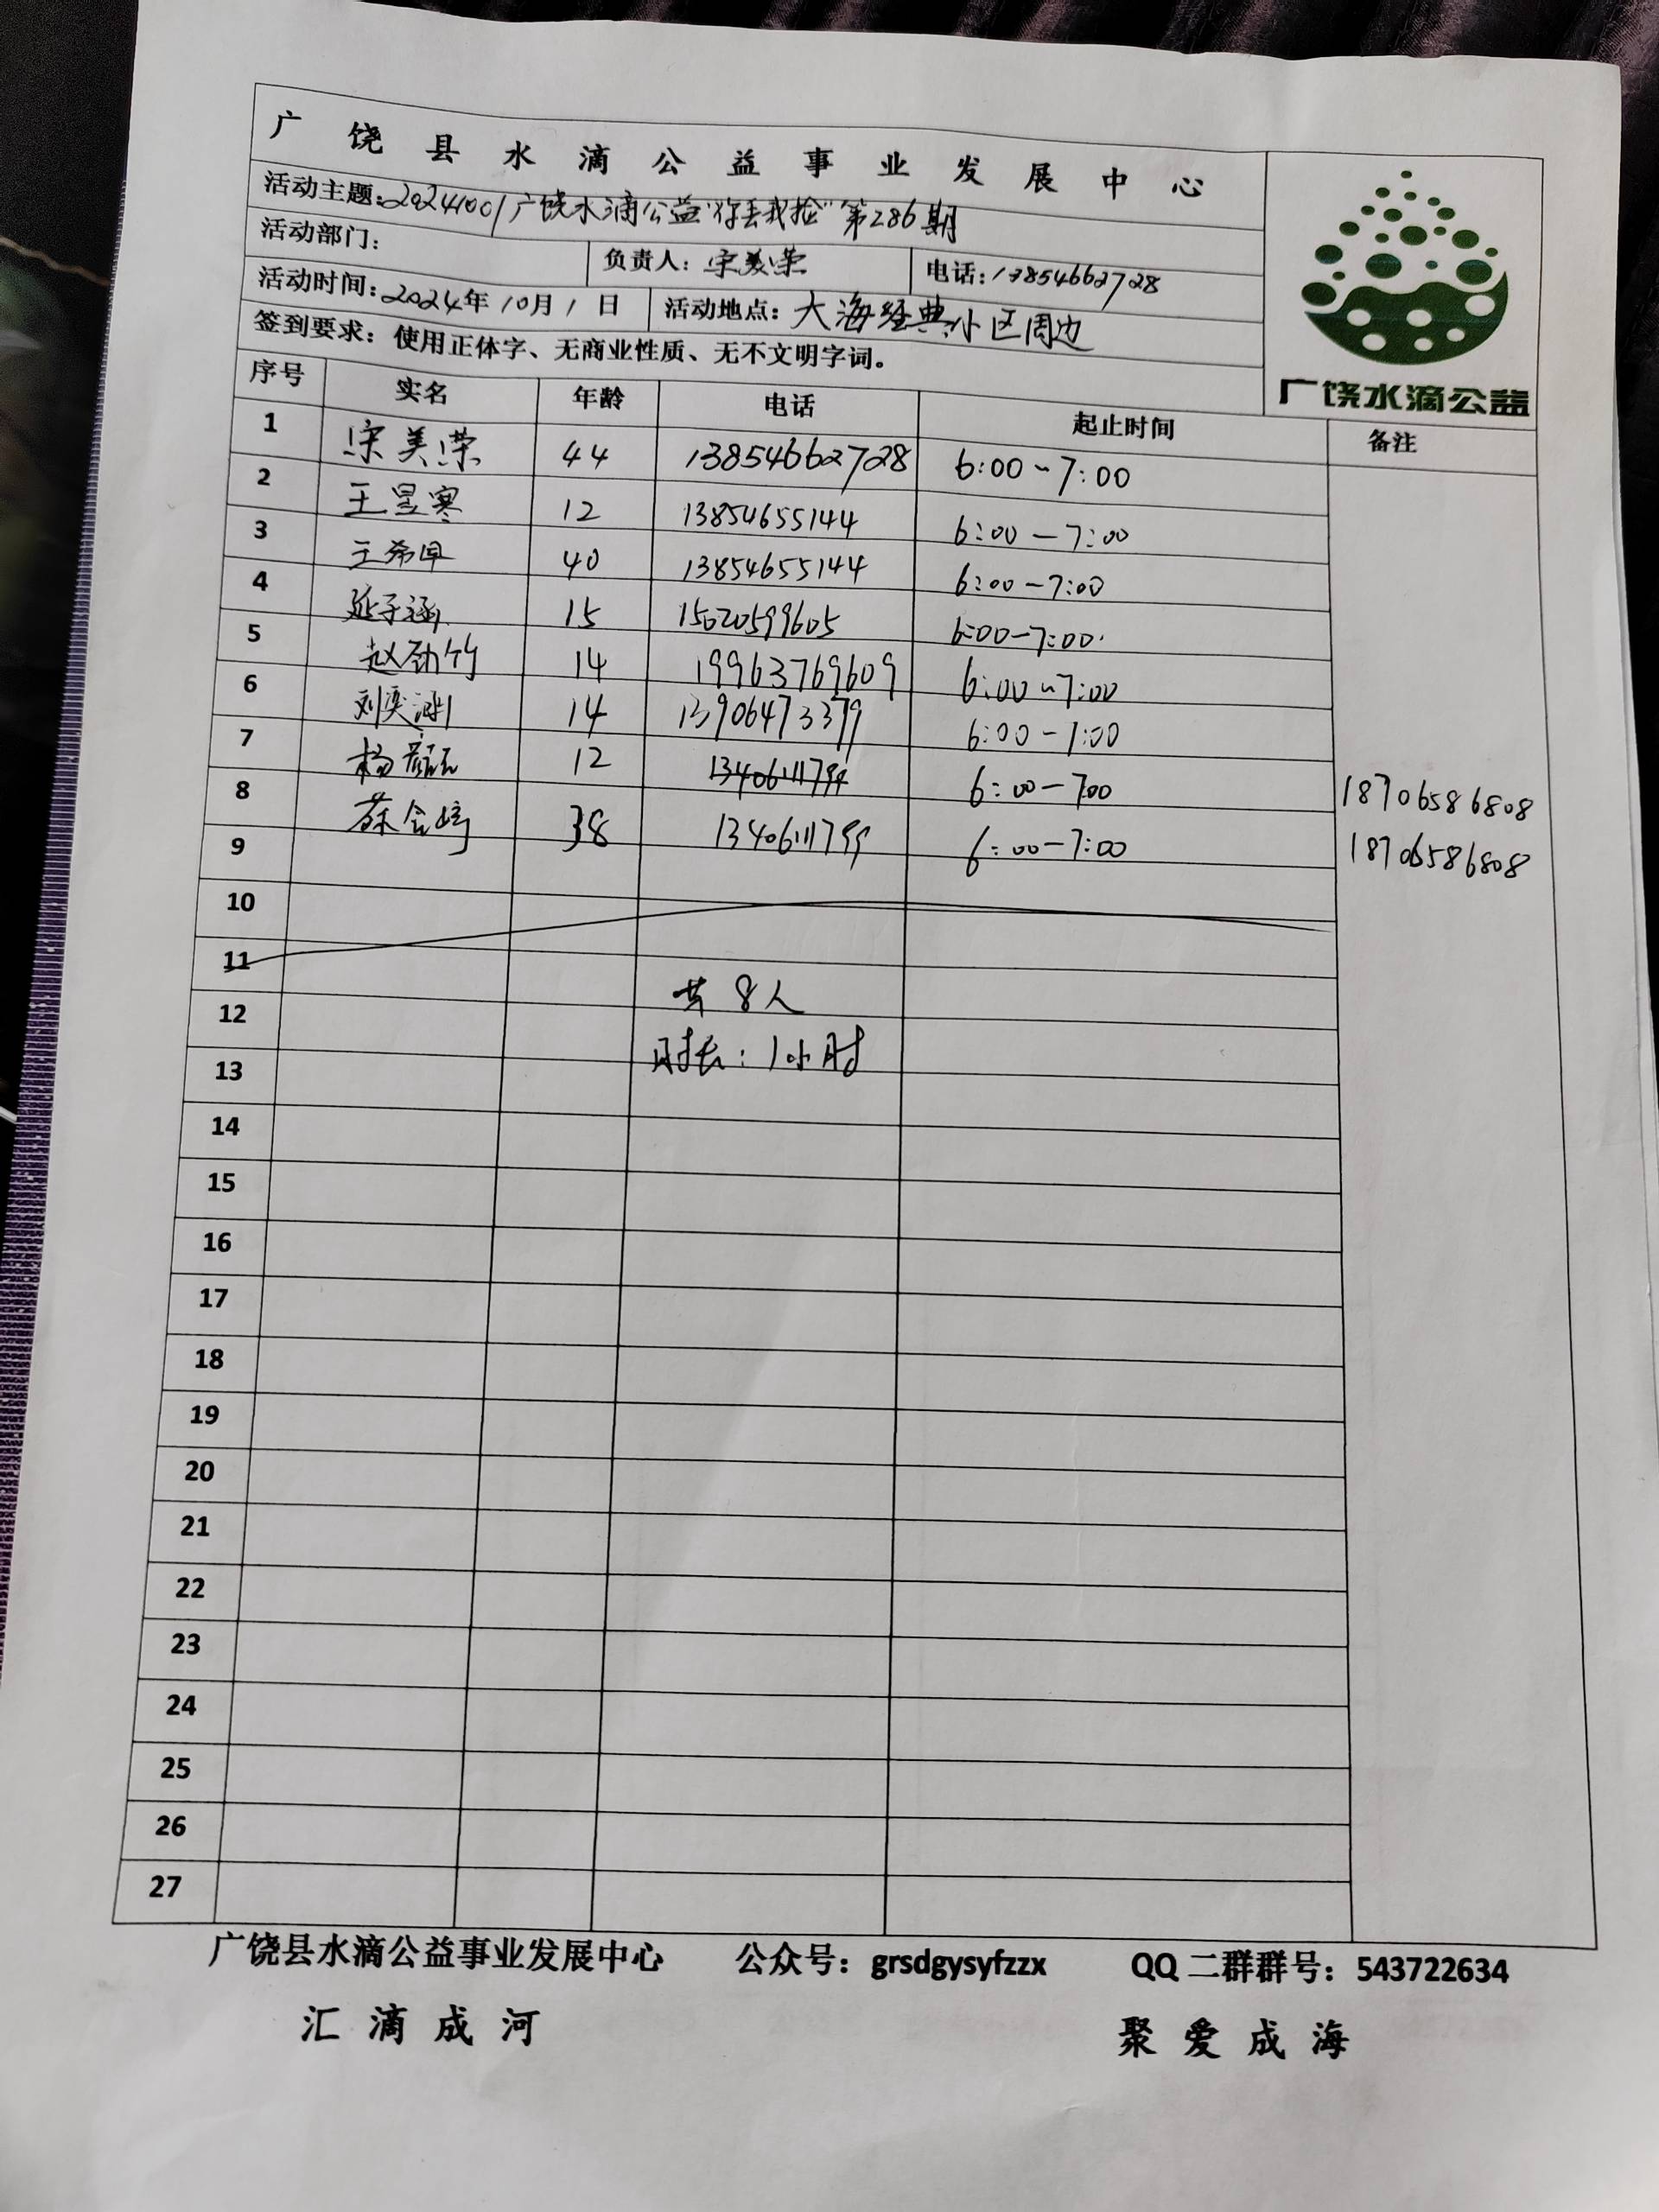 广饶县水滴公益事业发展中心
活动主题:20241001广饶水滴公益"你丢我捡"第286期
活动部门:
负责人: 宋美荣
电话:13854662728
活动时间:2024年10月1日
活动地点: 大海经典小区周边
签到要求: 使用正体字、无商业性质、无不文明字词。
广饶水滴公益
序号 实名 年龄 电话 起止时间 备注
1 宋美荣 44 13854662728 6:00~7:00
2 王昱寒 12 13854655144 6:00-7:00
3 王希 40 13854655144 6:00-7:00
4 延子涵 15 15020599605 6:00-7:00
5 赵劲竹 14 19963769609 6:00~7:00
6 刘奕渊 14 13906473379 6:00-7:00
7 杨 12 13406111799 6:00-7:00 18706586808
8 会 38 13406111799 6:00-7:00 18706586808
9
10
11
12 共8人
13 时长:1小时
14
15
16
17
18
19
20
21
22
23
24
25
26
27
广饶县水滴公益事业发展中心 公众号: grsdgysyfzzx QQ 二群群号: 543722634
汇滴成河 聚爱成海